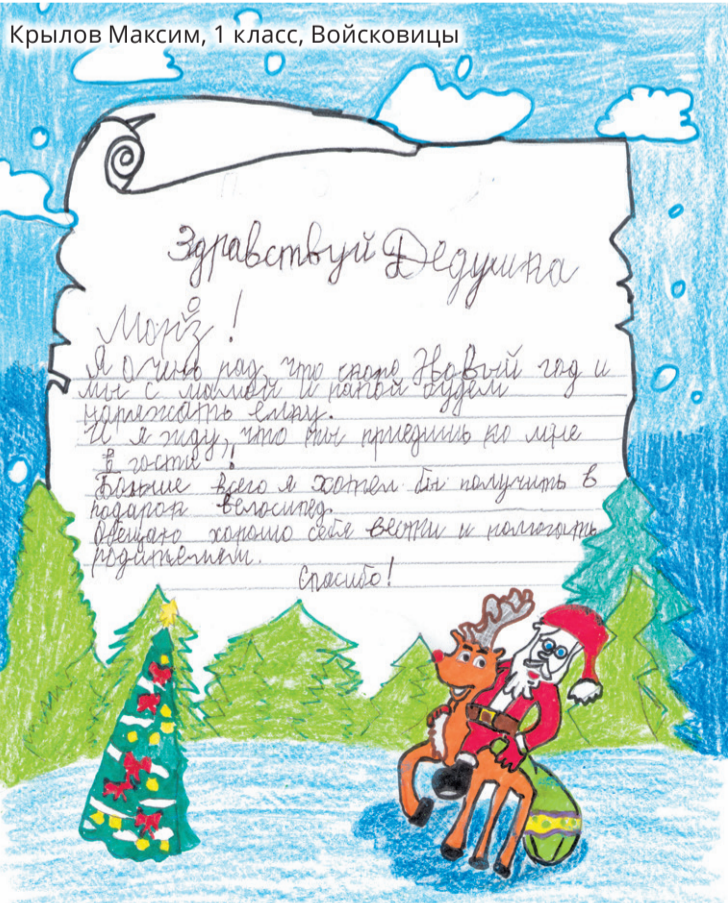 Крылов Максим, 1 класс, Войсковицы
Здравствуй Дедушка
Мороз!
Я очень рад, что скоро Новый год и
мы с мамой и папой будем
наряжать елку.
И я жду, что ты приедишь ко мне
в гости!
Больше всего я хотел бы получить в
подарок велосипед.
Обещаю хорошо себя вести и помогать
родителям.
Спасибо!